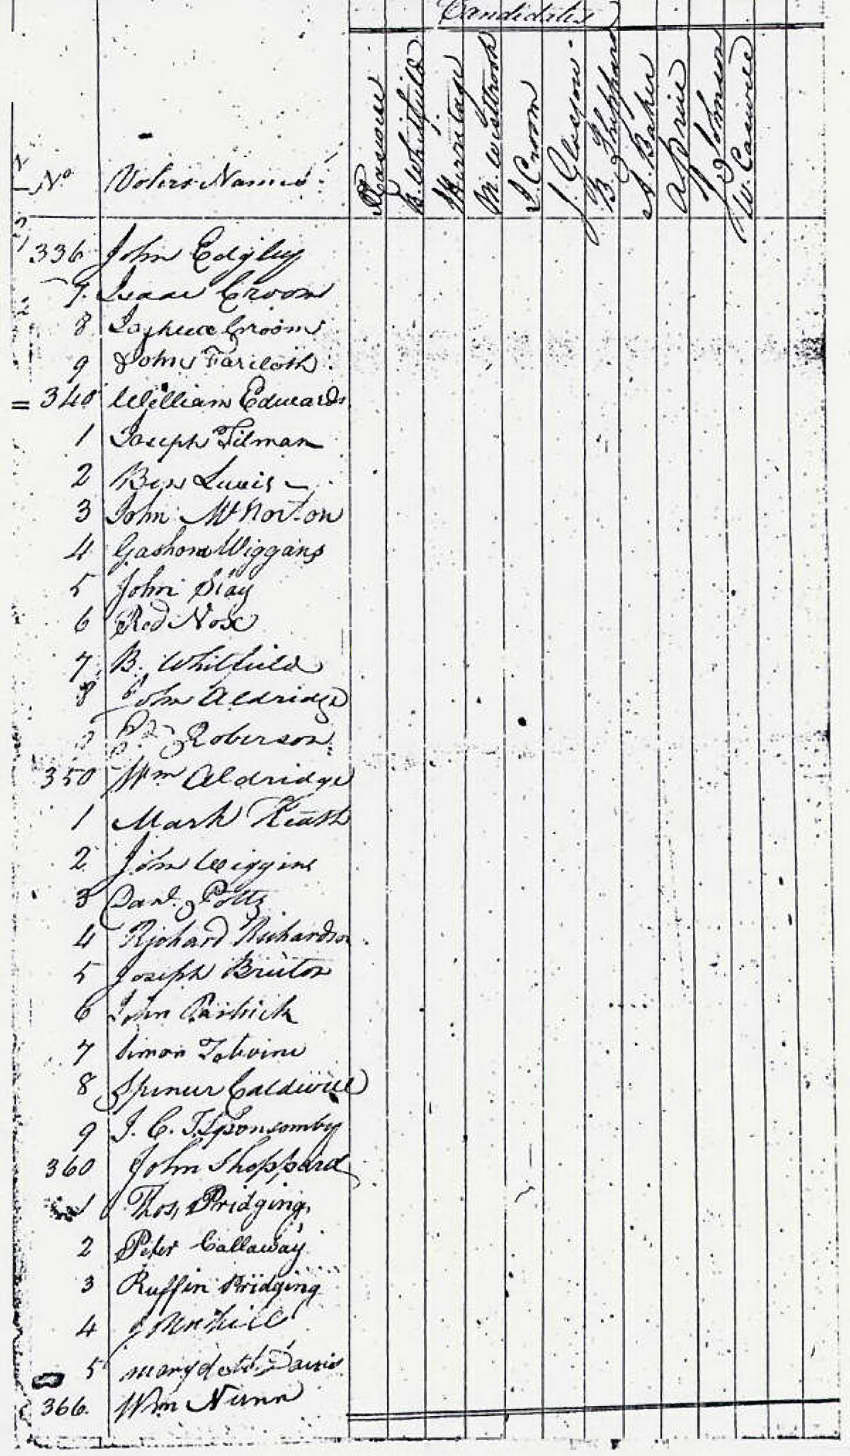 Candidates
No Voters Names
R Caswell
B. Whitfield
Herritage
M. Westbrook
J Croom
J. Glasgow
B. Sheppard
A. Baker
J Johnson
W. Caswell
336 John Edgley
7 Isaac Croom
8 Joshua Croom
9 John Faricloth
= 340 William Edwards
1 Joseph Tilman
2 Ben Lewis
3 John McNorton
4 Gashom Wiggans
5 John Slay
6 Red Nox
7 B. Whitfield
8 John Aldridge
9 Roberson
350 Wm Aldridge
1 Mark Heath
2 John Wiggins
3 Danl. Potts
4 Richard Richardson
5 Joseph Bruton
6 John
7 Simon
8 Spencer Caldwell
9 J. C.
360 John Sheppard
1 Thos, Pridging,
2 Peter Callaway
3 Ruffin Pridging
4
5 Davis
366. Wm Nunn